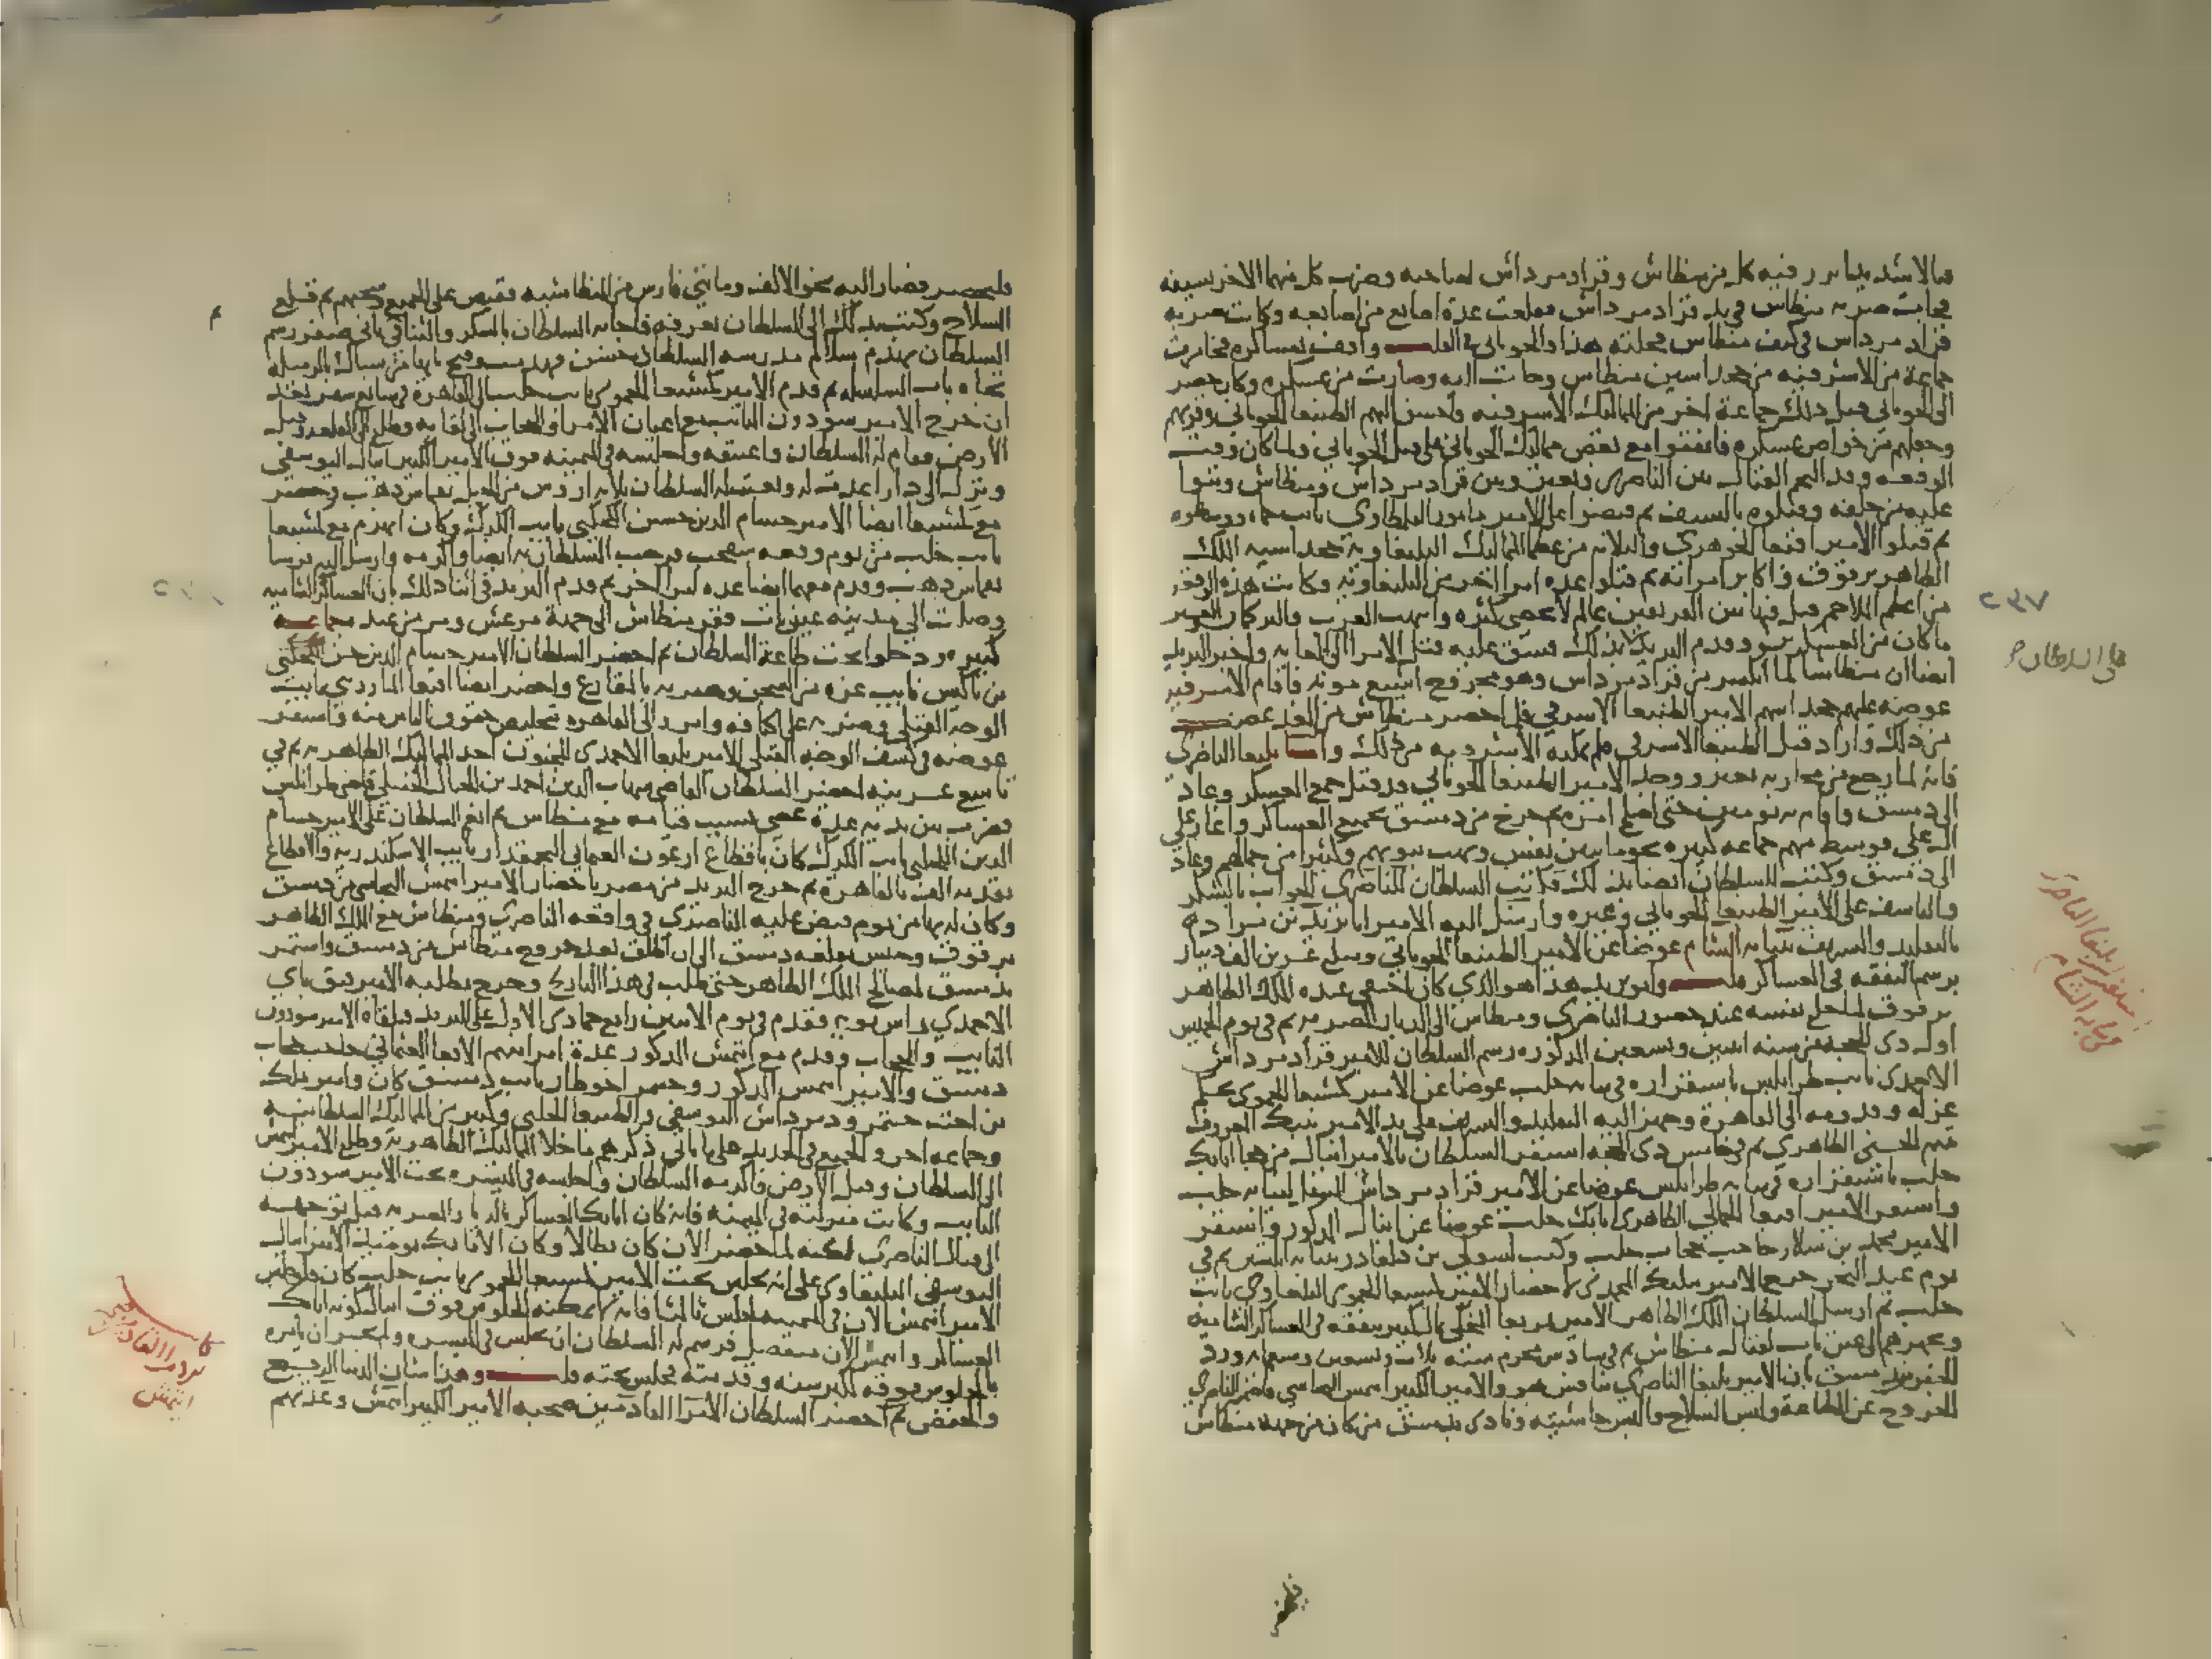 قتالا شديدا برز فيه كل من منطاش وقرا دمرداش لصاحبه وضرب كل منهما الاخر بسيفه
فجات ضربة منطاش في يد قرا دمرداش فقطعت عدة اصابع من اصابعه وكانت ضربة
قرا دمرداش في كتف منطاش فحلته هذا والجوباني في القلب واقف بعساكره فخامرت
جماعة من الاشرفيه من خجداشين منطاش وجات اليه وصارت من عسكره وكان حضر
الى الجوباني قبل ذلك جماعة اخر من المماليك الاشرفيه فاحسن اليهم الطنبغا الجوباني وقربهم
وجعلهم من خواص عسكره فاتفقوا مع بعض مماليك الجوباني على قتل الجوباني فلما كان وقت
الوقعه وقد التحم القتال بين الناصري ونعير وبين قرا دمرداش ومنطاش وثبوا
عليه من خلفه وقتلوه بالسيف ثم قبضوا على الامير مامور القلمطاوي نايب حماه ووسطوه
ثم قتلوا الامير اقبغا الجوهري والثلاثه من عظما المماليك اليلبغاويه خجداشيه الملك
الظاهر برقوق واكابر امرائه ثم قتلوا عدة امرا اخر من اليلبغاويه وكانت هذه الوقعه
من اعظم الملاحم قتل فيها من الفريقين عالم لا يحصى كثره وانتهبت العرب والتركمان العشير
ما كان من العسكرين وقدم البريد بذلك فشق عليه قتل الامرا الى الغايه واخبر البريد
ايضا ان منطاشا لما انكسر من قرا دمرداش وهو مجروح اشيع موته فاقام الاشرفيه
عوضه عليهم خجداشهم الامير الطنبغا الاشرفي فلما حضر منطاش من الغد غضب
من ذلك واراد قتل الطنبغا الاشرفي فلم تمكنه الاشرفيه من ذلك واما يلبغا الناصري
فانه لما رجع من محاربة نعير ووجد الامير الطنبغا الجوباني قد قتل جمع العسكر وعاد
الى دمشق واقام به يومين حتى اصلح امره ثم خرج من دمشق بجميع العساكر واغار على
ال علي فوسط منهم جماعه كبيره نحو مايتين نفس ونهب بيوتهم وكثيرا من جمالهم وعاد
الى دمشق وكتب للسلطان ايضا بذلك فكتب السلطان للناصري الجواب بالشكر
والتاسف على الامير الطنبغا الجوباني وغيره وارسل اليه الامير ابا يزيد بن مراد
بالتقليد والتشريف بنيابة الشام عوضا عن الامير الطنبغا الجوباني ومبلغ عشرين الف دينار
برسم النفقه في العساكر قلت وابو يزيد هذا هو الذي كان اختفى عنده الملك الظاهر
برقوق لما خلع نفسه عند حضور الناصري ومنطاش الى الديار المصريه ثم في يوم الخميس
اول ذي الحجه من سنة اثنين وتسعين المذكوره رسم السلطان للامير قرا دمرداش
الاحمدي نايب طرابلس باستقراره في نيابة حلب عوضا عن الامير كمشبغا الحموي بحكم
عزله وقدومه الى القاهرة وجهز اليه التقليد والتشريف على يد الامير تنبك المعروف
تنم الحسني الظاهري ثم في خامس ذي الحجه استقر السلطان بالامير اينال من خجا اتابك
حلب باستقراره في نيابة طرابلس عوضا عن الامير قرا دمرداش المنتقل لنيابة حلب
واستقر الامير اقبغا الجمالي الظاهري اتابك حلب عوضا عن اينال المذكور واستقر
الامير محمد بن سلار حاجب حجاب حلب وكتب لسولي بن دلغادر بنيابة ابلستين ثم في
يوم عيد النحر خرج الامير بلبك المحمدي لاحضار الامير كمشبغا الحموي اليلبغاوي نايب
حلب ثم ارسل السلطان الملك الظاهر الامير تمربغا المنجكي بمال كبير ينفقه في العساكر الشاميه
وتجهزهم الى عين تاب لقتال منطاش ثم في سادس محرم سنة ثلاث وتسعين وسبعمايه ورد
الخبر من دمشق بان الامير يلبغا الناصري تنافس هو والامير الكبير ايتمش البجاسي فاضمر الناصري
الخروج عن الطاعة ولبس السلاح والبس حاشيته ونادى بدمشق من كان من جهة منطاش
٢٣٧
استقر يلبغا الناصري
في نيابة الشام
فليحضر فصار اليه نحو الالف ومايتي فارس من المنطاشيه فقبض على الجميع وسجنهم ثم قلع
السلاح وكتب بذلك الى السلطان يعرفه فاجابه السلطان بالشكر والثنا في ثاني صفر رسم
السلطان بهدم سلالم مدرسة السلطان حسن فهدمت وفتح بابها من شباك بالرميله
تجاه باب السلسله ثم قدم الامير كمشبغا الحموي نايب حلب الى القاهرة في سابع صفر بعد
ان خرج الامير سودون النايب مع اعيان الامرا والحجاب الى لقايه وطلع الى القلعه وقبل
الارض فقام له السلطان واعتنقه واجلسه في الميمنه فوق الامير الكبير اينال اليوسفي
ونزل الى دار اعدت له وبعث له السلطان ثلاثة اروس من الخيل بقماش ذهب وحضر
مع كمشبغا ايضا الامير حسام الدين حسن الكجكني نايب الكرك وكان انهزم مع كمشبغا
نايب حلب من يوم وقعه شقحب فرحب السلطان به ايضا واكرمه وارسل اليه فرسا
بقماش ذهب وقدم معهما ايضا عدة امرا اخر ثم قدم البريد في اثنا ذلك بان العساكر الشاميه
وصلت الى مدينة عين تاب ففر منطاش الى جهة مرعش وفر من عنده جماعه
كبيره ودخلوا تحت طاعة السلطان ثم احضر السلطان الامير حسام الدين حسن
بن باكيش نايب غزه من السجن وضربه بالمقارع واحضر ايضا اقبغا المارديني نايب
الوجه القبلي وضربه على اكتافه وامر والى القاهره بتخليص حقوق الناس منه واستقر
عوضه في كشف الوجه القبلي الامير يلبغا الاحمدي المجنون احد المماليك الظاهريه ثم في
تاسع عشرينه احضر السلطان القاضي شهاب الدين احمد بن الحبال الحنبلي قاضي طرابلس
فضرب بين يديه عدة عصي بسبب قيامه مع منطاش ثم انعم السلطان على الامير حسام
الدين الكجكني نايب الكرك كان باقطاع ارغون العثماني البجمقدار نايب الاسكندريه والاقطاع
تقدمة الف بالقاهرة ثم خرج البريد من مصر باحضار الامير ايتمش البجاسي من دمشق
وكان له بها من يوم قبض عليه الناصري في واقعة الناصري ومنطاش مع الملك الظاهر
برقوق وحبس بقلعة دمشق الى ان اطلق بعد خروج منطاش من دمشق واستمر
بدمشق لمصالح الملك الظاهر حتى طلب في هذا التاريخ وخرج بطلبه الامير قنق باي
الاحمدي راس نوبه فقدم في يوم الاثنين رابع جمادى الاولى على البريد فتلقاه الامير سودون
النايب والحجاب وقدم مع ايتمش المذكور عدة امرا منهم الابغا العثماني حاجب حجاب
دمشق والامير ايتمش المذكور وجنتمر اخو طاز نايب دمشق كان وامير ملك
بن اخت جنتمر ودمرداش اليوسفي والطنبغا الحلبي وكثير من المماليك السلطانيه
وجماعه اخر والجميع في الحديد على ما ياتي ذكرهم ما خلا المماليك الظاهريه وطلع الامير ايتمش
الى السلطان وقبل الارض فاكرمه السلطان واجلسه في الميسره تحت الامير سودون
النايب وكانت منزلته في الميمنه فانه كان اتابك العساكر بالديار المصريه قبل توجهه
الى قتال الناصري لكنه لما حضر الان كان بطالا وكان الاتابك يومئذ الامير اينال
اليوسفي اليلبغاوي على انه يجلس تحت الامير كمشبغا الحموي نايب حلب كان فلو جلس
الامير ايتمش الان في الميمنه لجلس ثالثا فانه لا يمكنه الجلوس فوق اينال كونه اتابك
العساكر وايتمش الان منفصل فرسم له السلطان ان يجلس في الميسره ولم يجسر ان يامره
بالجلوس فوقه لكبر سنه وقدمته مجلس تحته قلت وهذا شان الدنيا الرفيع
والخفض ثم احضر السلطان الامرا القادمين صحبة الامير الكبير ايتمش وعدتهم